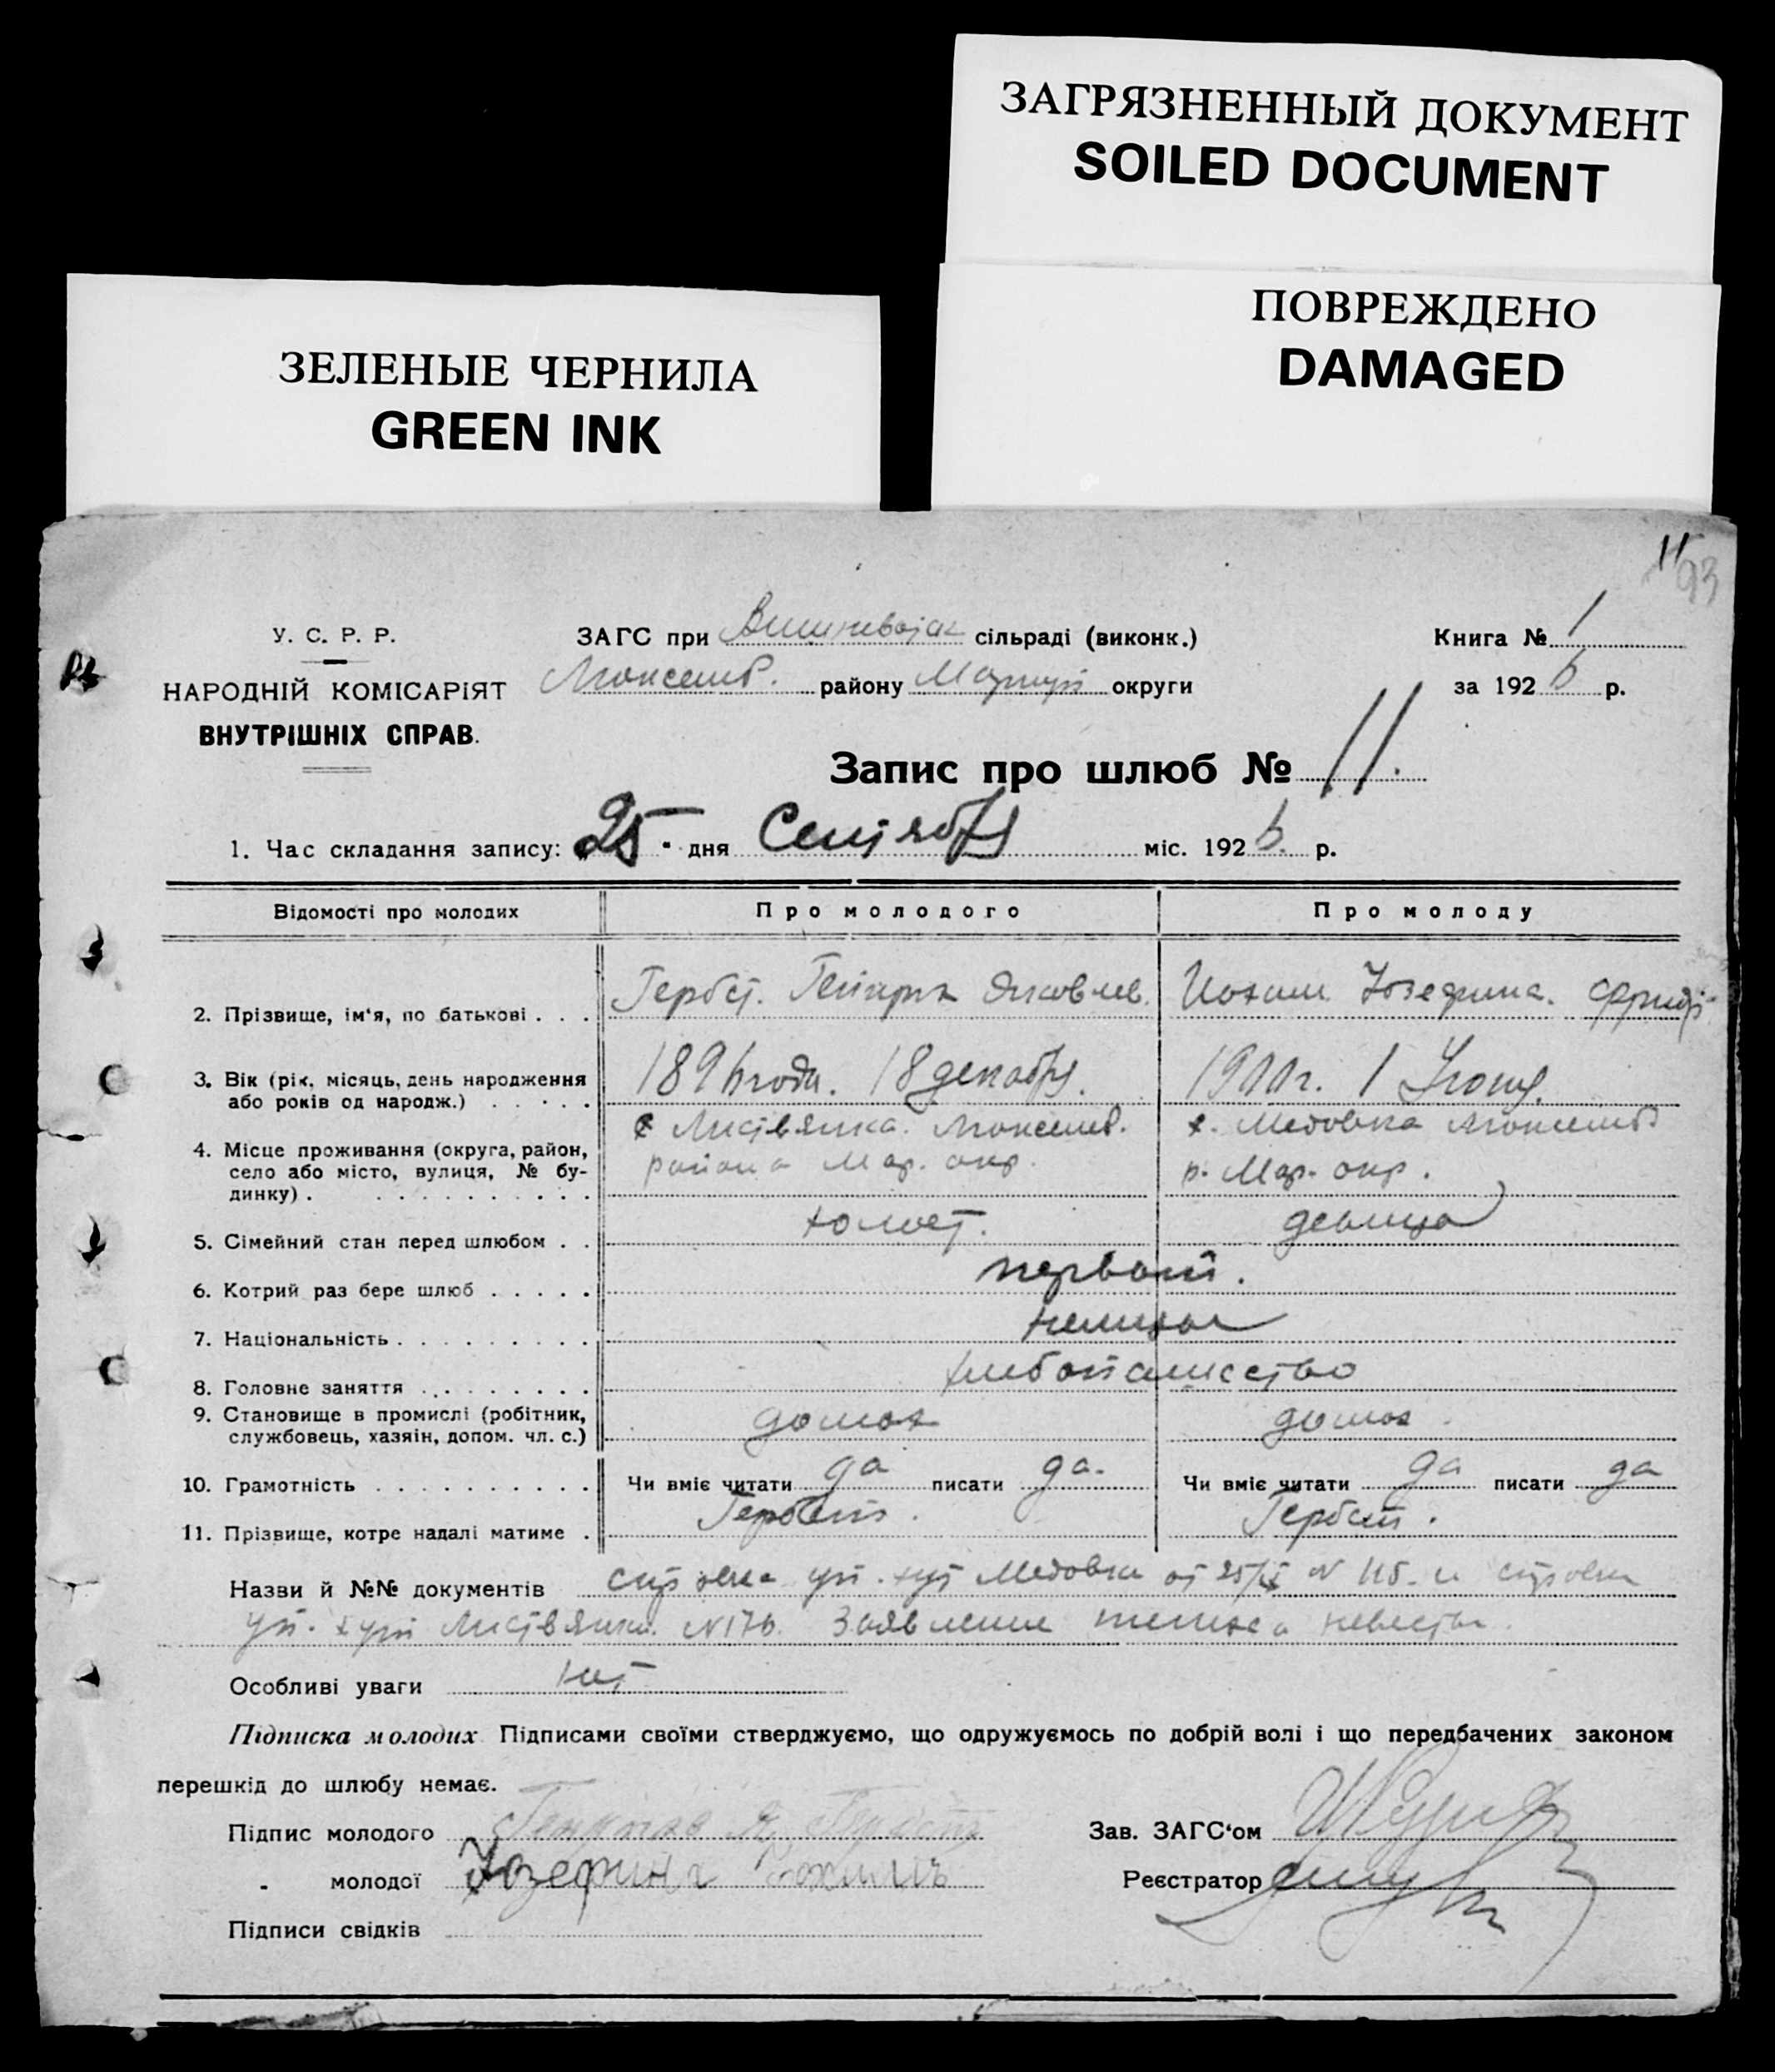 ЗАГРЯЗНЕННЫЙ ДОКУМЕНТ
SOILED DOCUMENT
ПОВРЕЖДЕНО
DAMAGED
ЗЕЛЕНЫЕ ЧЕРНИЛА
GREEN INK
11
93
У. С. Р. Р.
НАРОДНІЙ КОМІСАРІЯТ
ВНУТРІШНІХ СПРАВ.
ЗАГС при сільраді (виконк.)
району округи
Книга № 1
за 1926 р.
Запис про шлюб № 11.
1. Час складання запису: 25 дня Сентября міс. 1926 р.
Відомості про молодих Про молодого Про молоду
2. Прізвище, ім'я, по батькові . . . Гербст. Яковлев. Иохим Юзефина.
3. Вік (рік, місяць, день народження 1896 года. 18 декабря. 1900 г. 1
або років од народж.) . . . . .
4. Місце проживання (округа, район, Листвянка. Медовка
село або місто, вулиця, № бу- района Мар. окр. р. Мар. окр.
динку) . . . . . . . . . . .
5. Сімейний стан перед шлюбом . . холост. девица
6. Котрий раз бере шлюб . . . . . первый.
7. Національність . . . . . . . . . немцы
8. Головне заняття . . . . . . . . хлебопашество
9. Становище в промислі (робітник,
службовець, хазяін, допом. чл. с.)
10. Грамотність . . . . . . . . . . Чи вміє читати да писати да. Чи вміє читати да писати да
11. Прізвище, котре надалі матиме . Гербст. Гербст.
Назви й №№ документів справка уп. хут Медовка от 25/IX N 115. и справка
уп. хут Листвянка. N 176. Заявление жениха невесты.
Особливі уваги нет
Підписка молодих Підписами своїми стверджуємо, що одружуємось по добрій волі і що передбачених законом
перешкід до шлюбу немає.
Підпис молодого
Зав. ЗАГС'ом
„ молодої Юзефина
Реєстратор
Підписи свідків